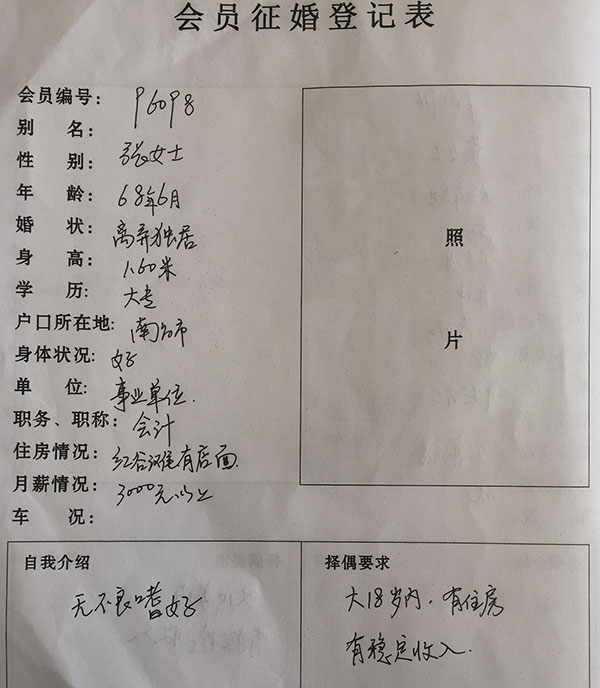 会员征婚登记表
会员编号： P6098
别 名：
性 别： 张女士
年 龄： 68年6月
婚 状： 离异独居
身 高： 1.60米
学 历： 大专
户口所在地： 南昌市
身体状况： 好
单 位： 事业单位.
职务、职称： 会计
住房情况： 红谷滩有店面.
月薪情况： 3000元以上
车 况：
照
片
自我介绍
无不良嗜好
择偶要求
大18岁内，有住房
有稳定收入.